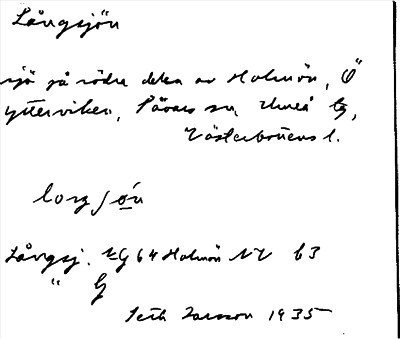 Långsjön
sjö på södra delen av Holmön, Ö
ytterviken, Sävars sn, Umeå tg,
Västerbottens l.
Långsj. EG 64 Holmön NV b3
"
Seth Larsson 1935